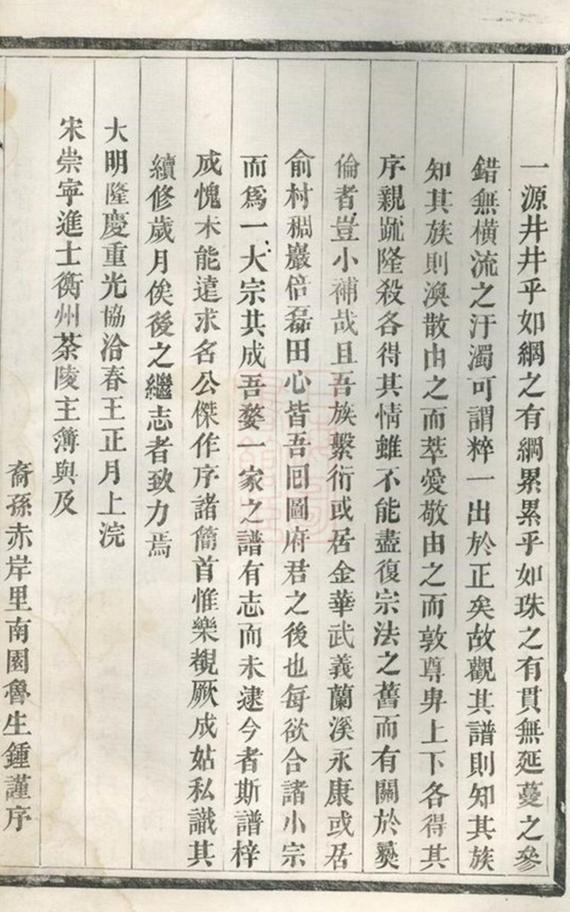 一源井井乎如網之有綱累累乎如珠之有貫無延蔓之參
錯無橫流之汙濁可謂粹一出於正矣故觀其譜則知其族
知其族則渙散由之而萃愛敬由之而敦尊卑上下各得其
序親疏隆殺各得其情雖不能盡復宗法之舊而有關於彜
倫者豈小補哉且吾族繫衍或居金華武義蘭溪永康或居
俞村稠巖倍磊田心皆吾囘圖府君之後也每欲合諸小宗
而爲一大宗共成吾婺一家之譜有志而未逮今者斯譜梓
成愧未能遠求名公傑作序諸簡首惟樂覩厥成姑私識其
續修歲月俟後之繼志者致力焉
大明隆慶重光協洽春王正月上浣
宋崇寧進士衡州茶陵主簿與及
裔孫赤岸里南園魯生鍾謹序